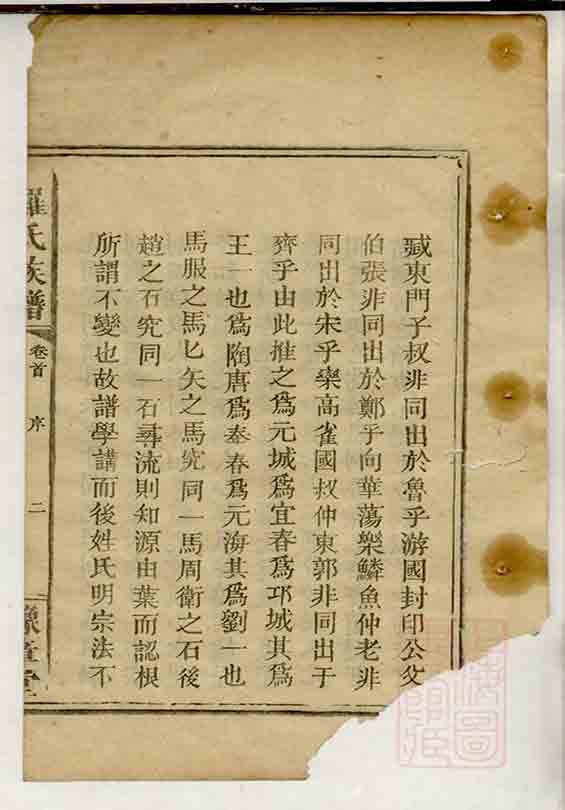 臧東門子叔非同出於魯乎游國封印公父
伯張非同出於鄭乎向華蕩樂鱗魚仲老非
同出於宋乎欒高雀國叔仲東郭非同出于
齊乎由此推之爲元城爲宜春爲邛城其爲
王一也爲陶唐爲奉春爲元海其爲劉一也
馬服之馬匕矢之馬究同一馬周衛之石後
趙之石究同一石尋流則知源由葉而認根
所謂不變也故譜學講而後姓氏明宗法不
羅氏族譜
卷首
序
二
豫章堂